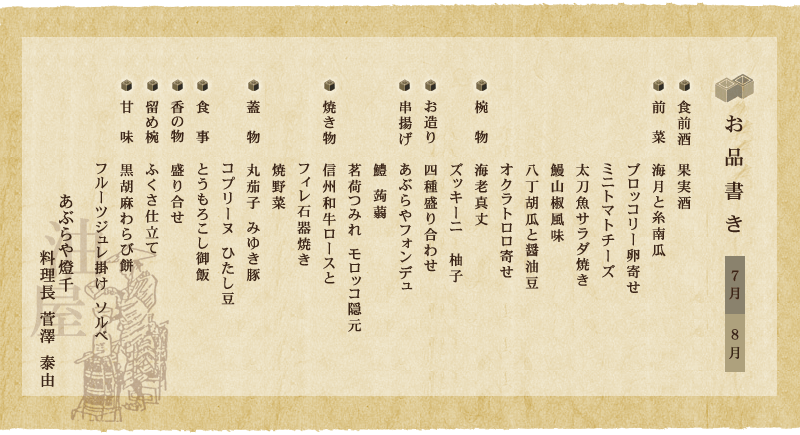 お品書き
7月
8月
食前酒 果実酒
前菜 海月と糸南瓜
ブロッコリー卵寄せ
ミニトマトチーズ
太刀魚サラダ焼き
鰻山椒風味
八丁胡瓜と醤油豆
オクラトロロ寄せ
椀物 海老真丈
ズッキーニ 柚子
お造り 四種盛り合わせ
串揚げ あぶらやフォンデュ
鱧 蒟蒻
茗荷つみれ モロッコ隠元
焼き物 信州和牛ロースと
フィレ石器焼き
焼野菜
蓋物 丸茄子 みゆき豚
コプリーヌ ひたし豆
食事 とうもろこし御飯
香の物 盛り合せ
留め椀 ふくさ仕立て
甘味 黒胡麻わらび餅
フルーツジュレ掛け ソルベ
あぶらや燈千
料理長 菅澤 泰由
油屋